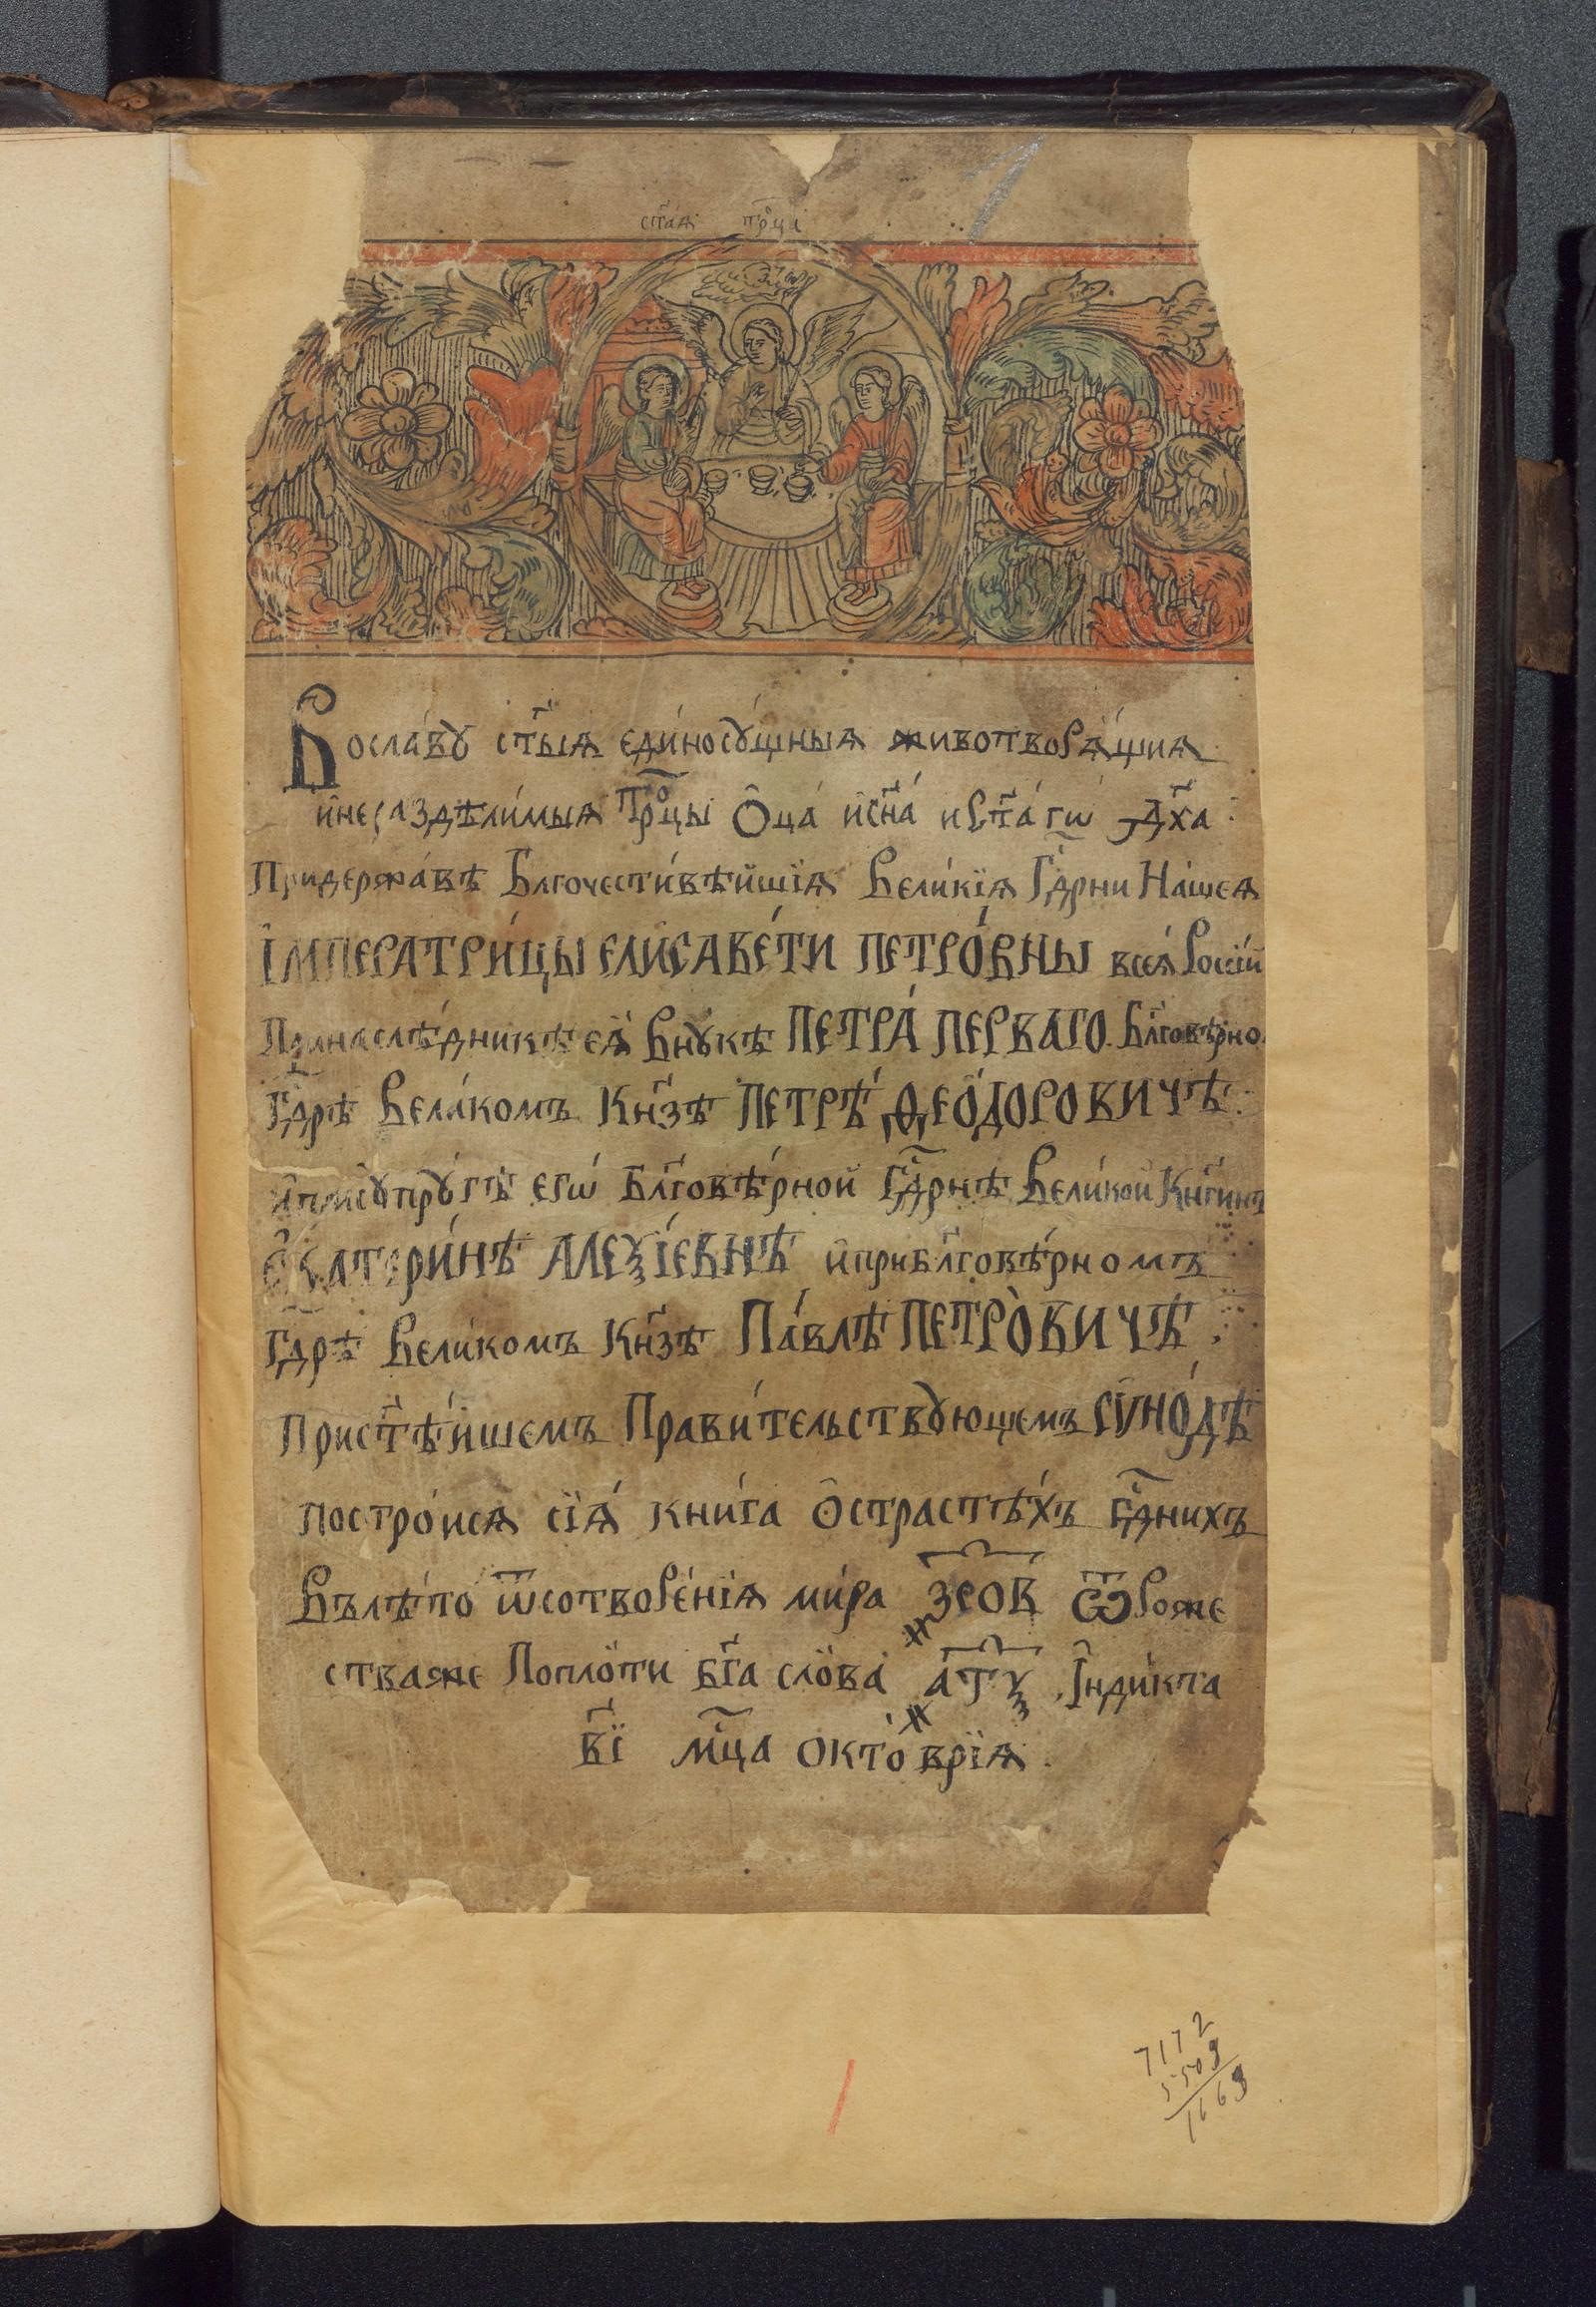 ст҃ая тр҃ца
Вославу ст҃ыѧ єди́носу́щныѧ животворѧ́щиѧ
и҆нераздѣли́мыѧ Тр҃цы Ѻ҆ца́ и҆сн҃а и҆ст҃а́гѡ дх҃а :
Придержа́вѣ Блгочести́вѣйшїѧ Вели́кїѧ Гд҃рни На́шеѧ
І҆МПЕРАТРИ́ЦЫ ЕЛИСАВЕ́ТИ ПЕТРО́ВНЫ всеѧ́ Росїи
Принаслѣ́дникѣ еѧ̀ Вну́кѣ ПЕТРА̀ ПЕРВАГО. Бл҃говѣрно.
Гд҃рѣ Вели́комъ Кн҃зѣ ПЕТРѢ̀ ѲЕО́ДОРОВИЧѢ :
и҆присупру́гѣ єгѡ̀ Бл҃говѣ́рной Гд҃рнѣ Вели́кой Кн҃гинѣ
Е҆КАТЕРИ́НѢ АЛЕѮІ́ЕВНѢ и҆прибл҃говѣ́рномъ
Гд҃рѣ Вели́комъ Кн҃зѣ Па́влѣ ПЕТРО̀ВИЧѢ :
Прист҃ѣ́йшемъ Прави́тельствующемъ СѴНО́ДѢ
постро́исѧ сїѧ́ кни́га Ѻ҆страстѣ́хъ гд҃нихъ
Вълѣ́то ѿсотворе́нїѧ ми́ра ҂зсов҃ ѿроже
стваже Попло́ти бг҃а сло́ва ҂а҃тѯ І҆нди́кта
в҃ї мц҃а окто́врїѧ .
7172
5508
1668